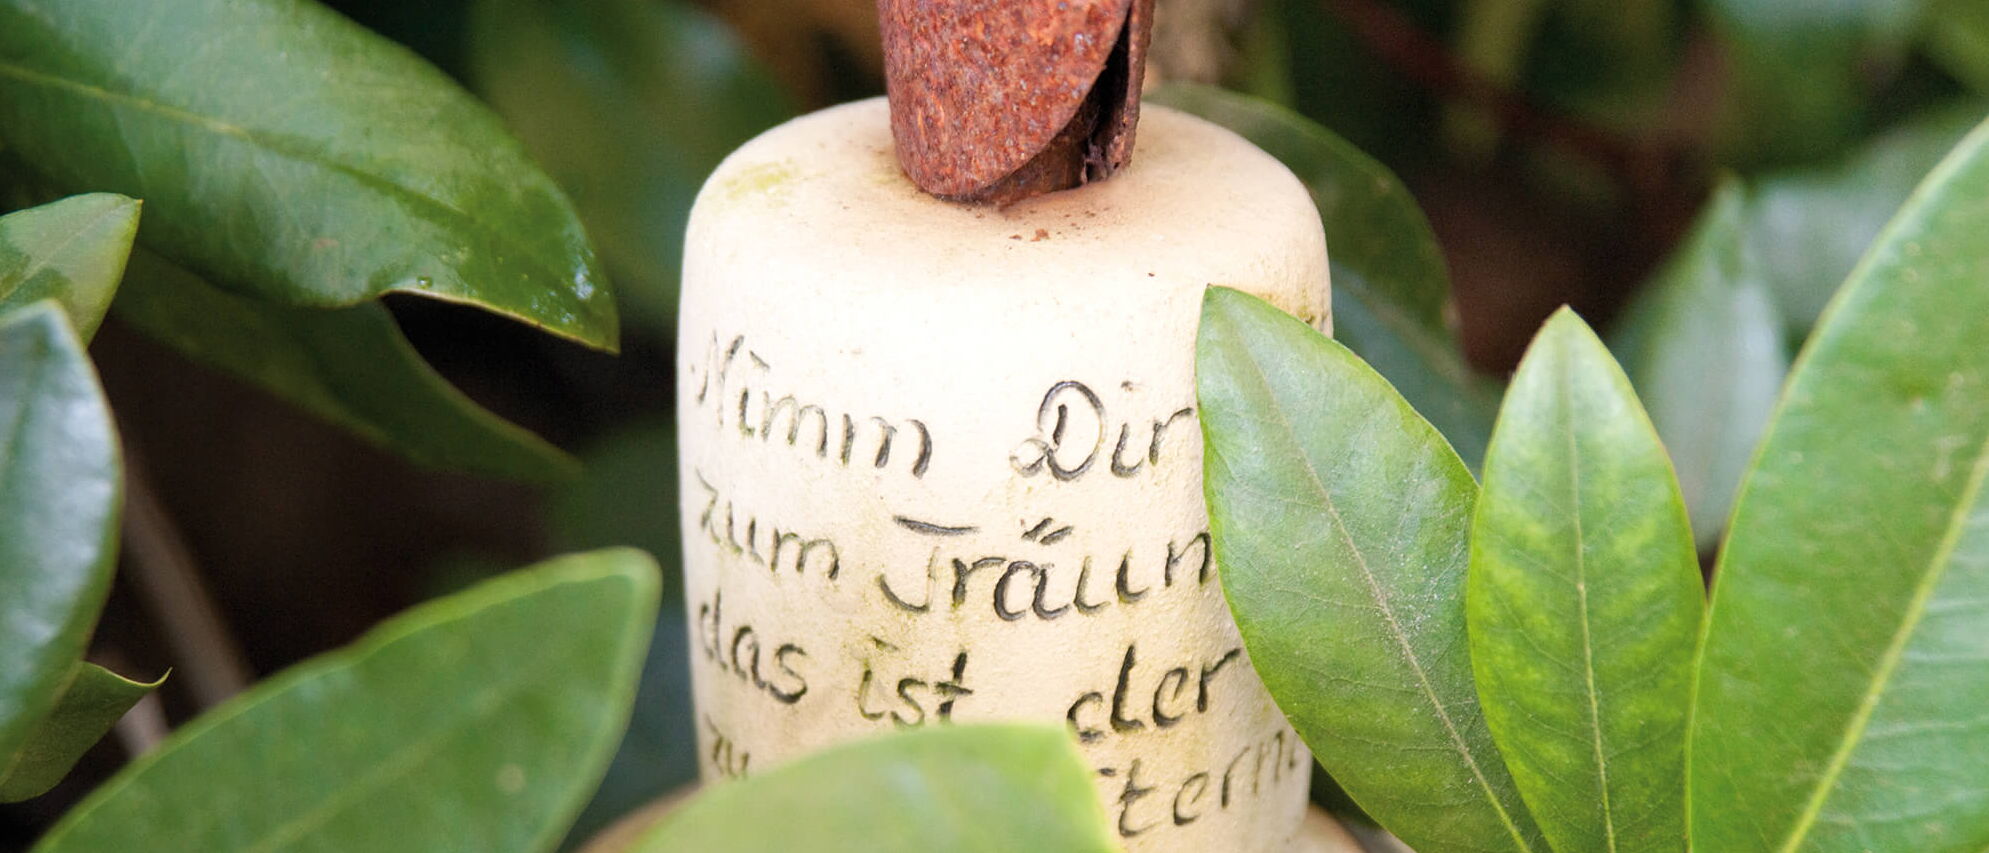 Nimm Dir
zum Träum
das ist der
zu tern